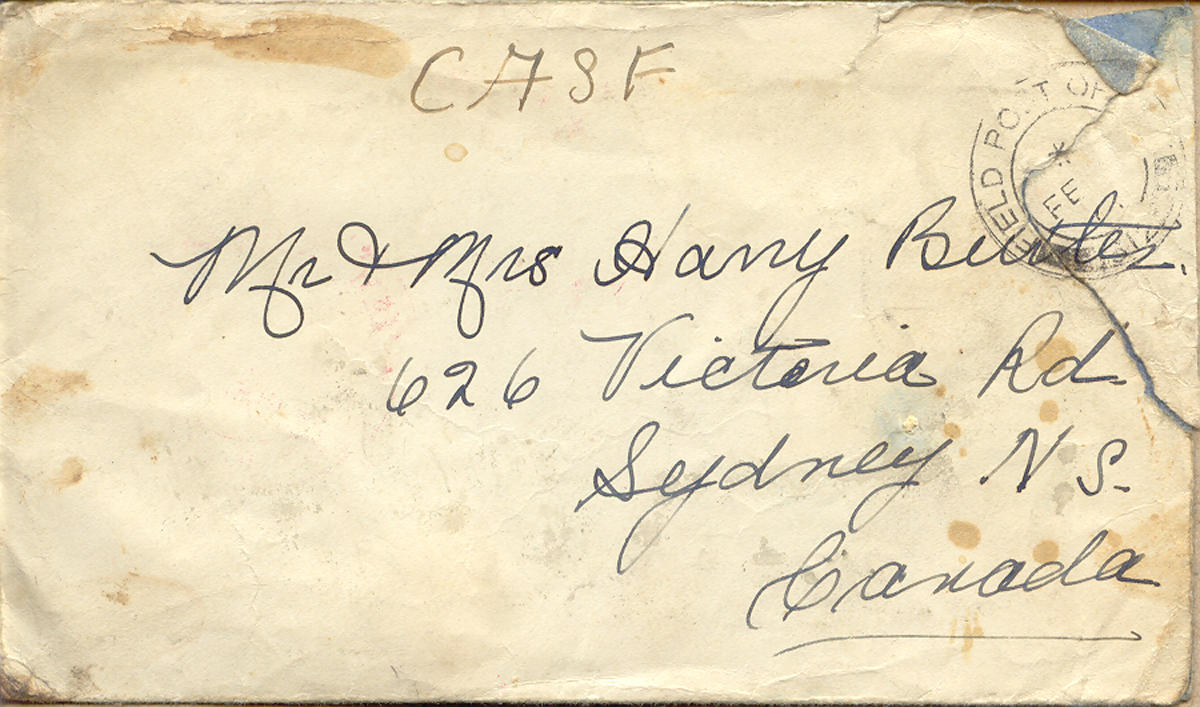 CASF
FIELD POST OF
*
FE
Mr & Mrs Harry Butler.
626 Victoria Rd.
Sydney N S.
Canada